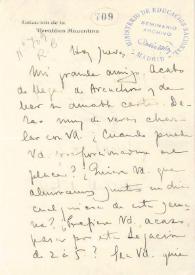 Legación de la
República Argentina
709
MINISTERIO DE EDUCACIÓN NACIONAL
SEMINARIO
ARCHIVO
MADRID
Hoy jueves.
Mi grande amigo: Acabo
de llegar de Arcachon y de
leer su amable carta. De-
seo muy de veras char-
lar con Vd. ¿Cuándo puede
Vd. proporcionarme ese
placer? ¿Quiere Vd. que
almorcemos juntos un día
cualquiera de esta se-
mana? ¿Prefiere Vd. acaso
pasar por esta Legación
de 2 á 5? Sea Vd. quien